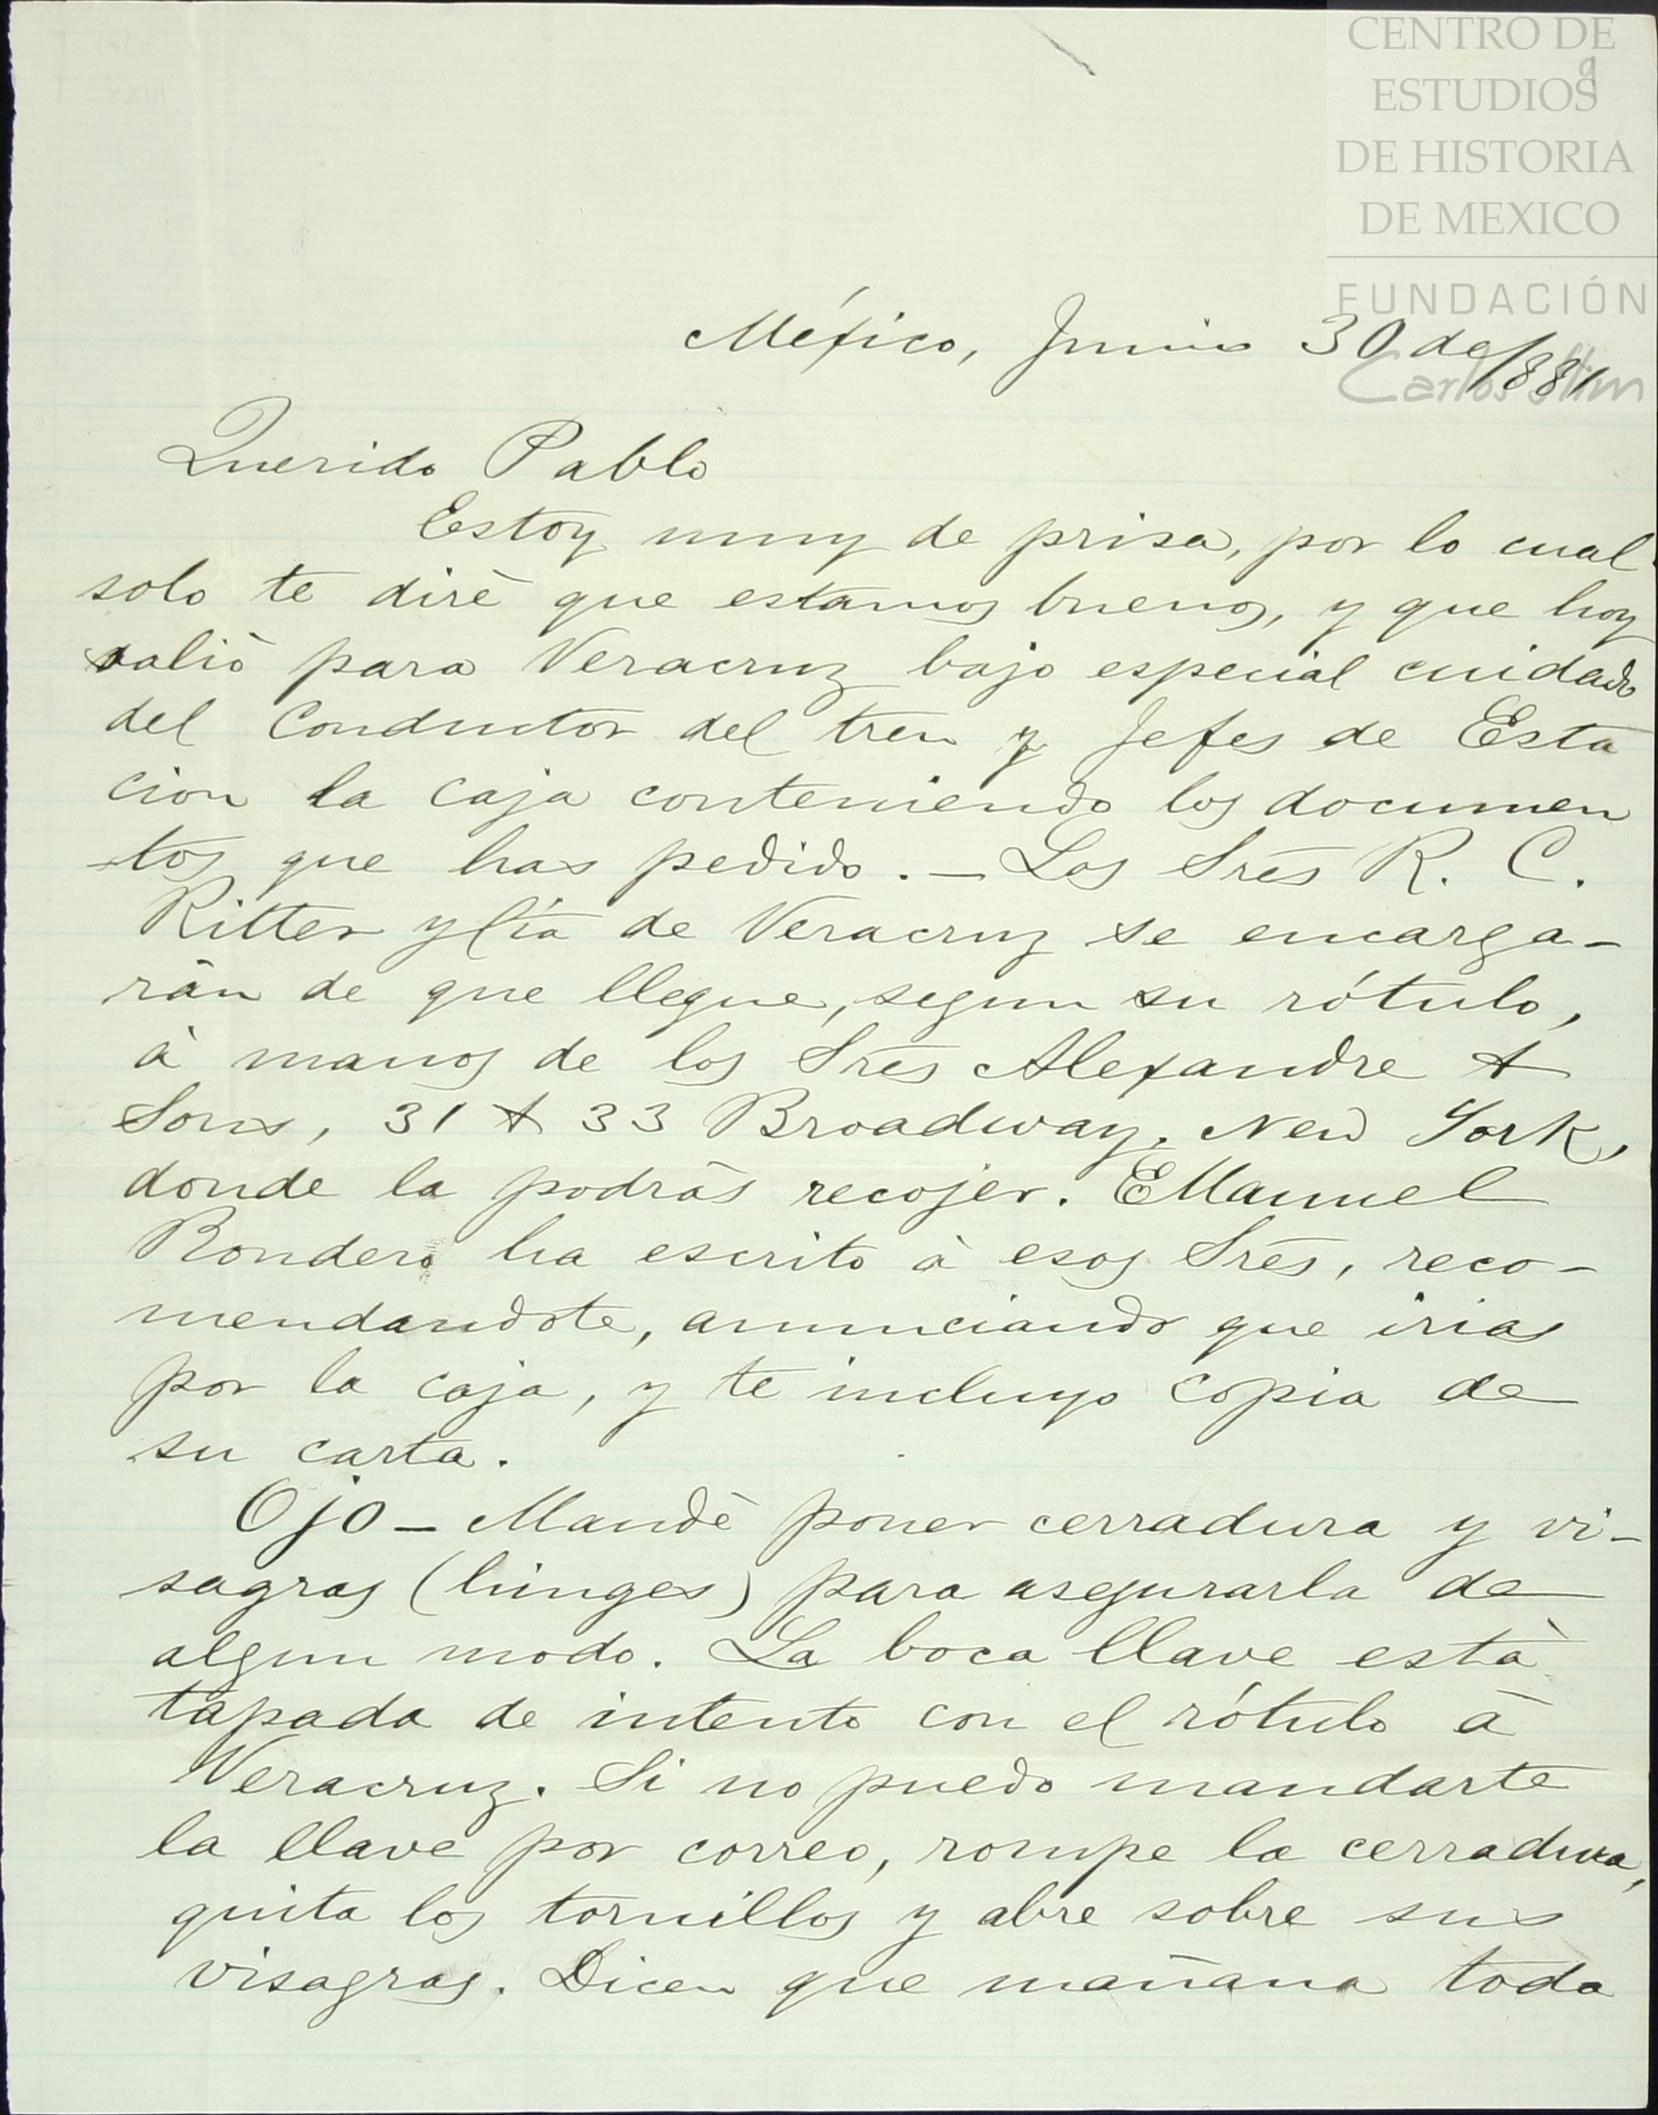 CENTRO DE
ESTUDIOS
DE HISTORIA
DE MEXICO
FUNDACIÓN
Carlos Slim
9
México, Junio 30 de 1881
Querido Pablo
Estoy muy de prisa, por lo cual
solo te diré que estamos buenos, y que hoy
salió para Veracruz bajo especial cuidado
del Conductor del tren y Jefes de Esta
cion la caja conteniendo los documen
tos que has pedido. — Los Sres R. C.
Ritter y Cía de Veracruz se encarga-
rán de que llegue, segun su rótulo,
à manos de los Sres Alexandre &
Sons, 31 & 33 Broadway, New York,
donde la podràs recojer. El Manuel
Rondero ha escrito à esos Sres, reco-
mendandote, anunciando que irias
por la caja, y te incluyo copia de
su carta.
Ojo — Mandè poner cerradura y vi-
sagras (hinges) para asegurarla de
algun modo. La boca llave està
tapada de intento con el rótulo à
Veracruz. Si no puedo mandarte
la llave por correo, rompe la cerradura,
quita los tornillos y abre sobre sus
visagras. Dicen que mañana toda